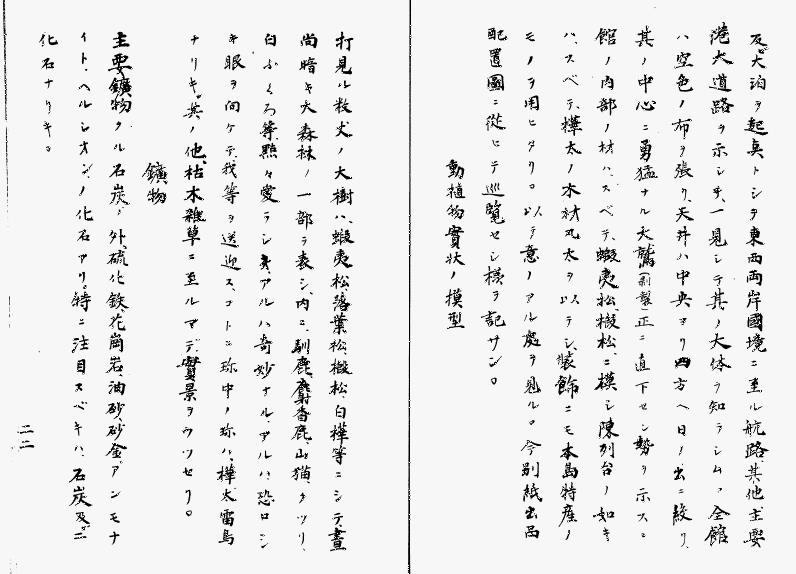 及ビ大泊ヲ起点トシテ東西両岸國境ニ至ル航路、其他主要
港大道路ヲ示シ手、一見シテ其ノ大体ヲ知ラシム、全館
ハ空色ノ布ヲ張リ、天井ハ中央ヨリ四方ヘ日ノ出ニ絞リ、
其ノ中心ニ勇猛ナル大鷲(剥製)正ニ直下セン勢ヲ示スニ
館ノ内部ノ材ハ、スベテ、蝦夷松、椴松ニ模シ陳列台ノ如キ
ハ、スベテ、樺太ノ木材丸太ヲ以テシ、装飾ニモ本島特産ノ
モノヲ用ヒタリ。以テ意ノアル處ヲ見ル。今別紙出品
配置圖ニ從ヒテ巡覧セシ様ヲ記サン。
動植物實状ノ模型
打見ル数丈ノ大樹ハ、蝦夷松、落葉松、椴松、白樺等ニシテ、晝
尚暗キ大森林ノ一部ヲ表シ、内ニ、馴鹿、麝香鹿、山猫、タツリ、
白ふくろ等、點々愛ラシキ、アルハ奇妙ナル、アルハ恐ロシ
キ眼ヲ向ケテ、我等ヲ送迎ス、コトニ珍中ノ珍ハ、樺太雷鳥
ナリキ。其ノ他、枯木雑草ニ至ルマデ、實景ヲウツセリ。
鑛物
主要鑛物タル石炭ノ外、硫化鉄、花崗岩、油砂、砂金、アンモナ
イト、ヘルシオンノ化石アリ。特ニ注目スベキハ、石炭及ビ
化石ナリキ。
二二